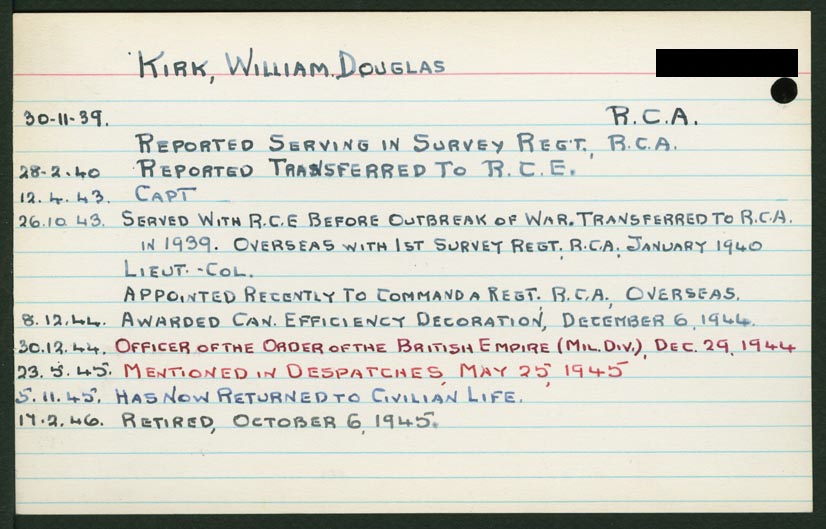 KIRK, WILLIAM DOUGLAS
30-11-39. R.C.A.
REPORTED SERVING IN SURVEY REGT., R.C.A.
28-2-40 REPORTED TRANSFERRED TO R.C.E.
12.4.43. CAPT
26.10.43. SERVED WITH R.C.E BEFORE OUTBREAK OF WAR. TRANSFERRED TO R.C.A.
IN 1939. OVERSEAS WITH 1ST SURVEY REGT, R.C.A, JANUARY 1940
LIEUT.-COL.
APPOINTED RECENTLY TO COMMAND A REGT. R.C.A., OVERSEAS.
8.12.44. AWARDED CAN. EFFICIENCY DECORATION, DECEMBER 6, 1944.
30.12.44. OFFICER OF THE ORDER OF THE BRITISH EMPIRE (MIL.DIV.), DEC. 29, 1944
23.5.45. MENTIONED IN DESPATCHES, MAY 25, 1945
5.11.45. HAS NOW RETURNED TO CIVILIAN LIFE.
17.2.46. RETIRED, OCTOBER 6, 1945.